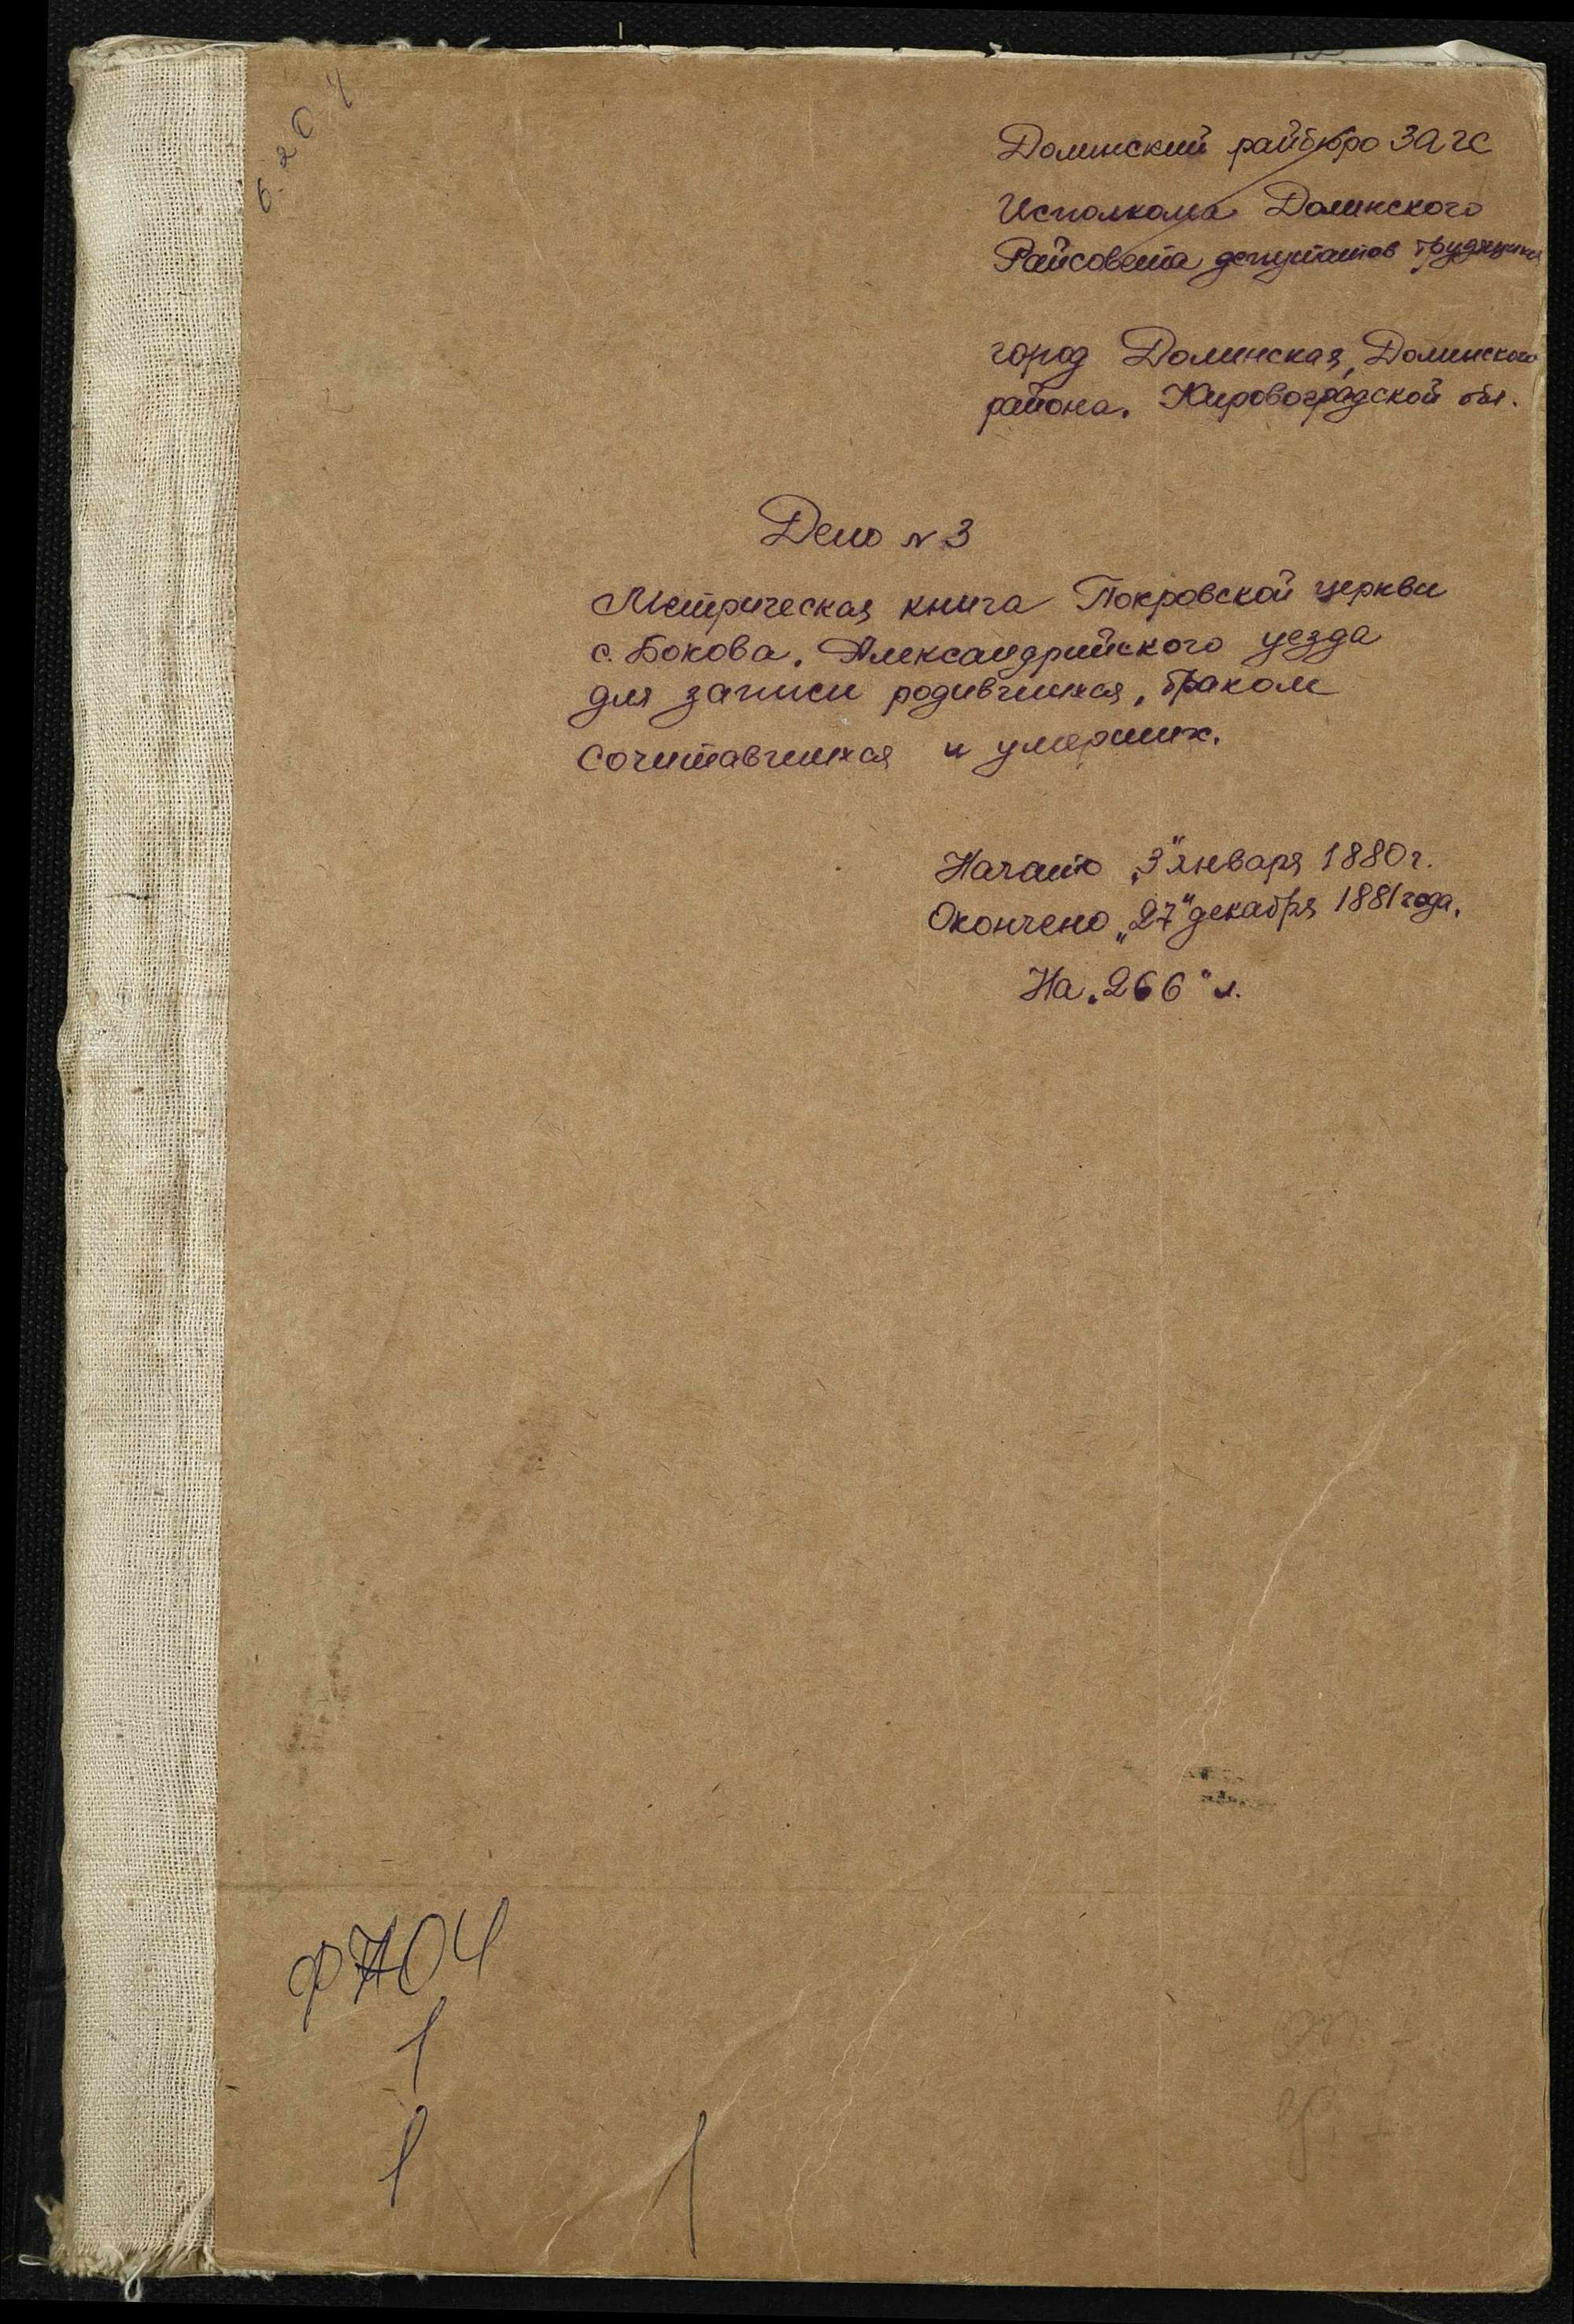 6.204
Долинский райбюро ЗАГС
Исполкома Долинского
Райсовета депутатов трудящихся
город Долинская, Долинского
района. Кировоградской обл.
Дело N 3
Метрическая книга Покровской церкви
с. Бокова. Александрийского уезда
для записи родившихся, браком
сочитавшихся и умерших.
Начато „3" января 1880 г.
Окончено „27" декабря 1881 года.
На „266" л.
1
1
1